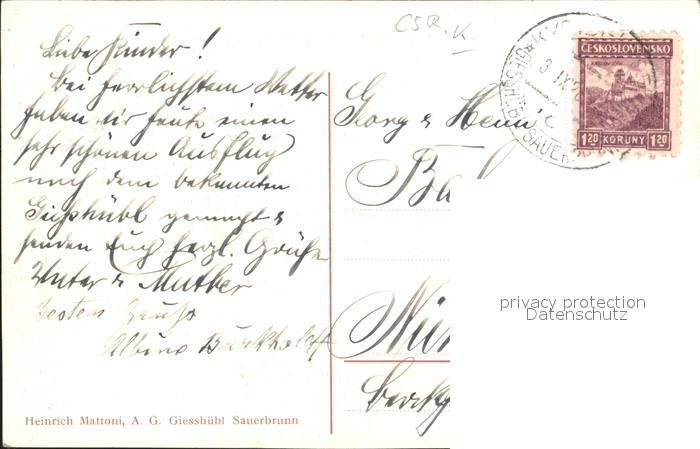 ČSR. K.
Liebe Kinder!
Bei herrlichstem Wetter
haben wir heute einen
sehr schönen Ausflug
nach dem bekannten
Gießhübl gemacht &
senden Euch herzl. Grüße
Vater & Mutter
Besten Gruß
Albino Burkholdt
Heinrich Mattoni, A. G. Giesshübl Sauerbrunn
Georg & Henni
ČESKOSLOVENSKO
1.20 KORUNY 1.20
3 IX
GIESSHÜBL SAUER
privacy protection
Datenschutz